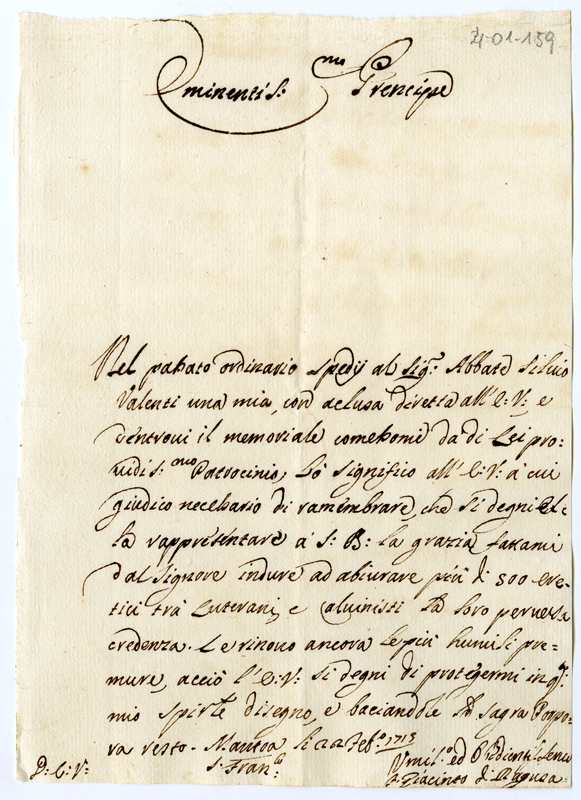 4-01-159
Eminentis:mo Prencipe
Nel passato ordinario spedij al Sigr: Abbate Silvio
Valenti una mia, con aclusa diretta all'E: V: e
dentrovi il memoriale comessomi da di Lei pro-
uidis:mo Patrocinio, lo significo all'E: V: à cui
giudico necessario di ramembrare, che si degni El-
la rappresentare à S: B: la grazia fattami
dal Signore indure ad abiurare più di 500 ere-
tici trà Luterani, e Caluinisti la loro peruersa
credenza. Le rinouo ancora le più humili pre-
mure, acciò l'E: V: si degni di protegermi in qto:
mio disegno, e baciandole la sagra Porpo-
ra resto. Mantoa li 22 Feb:o 1713
D: E: V: S: Franco:
Umil:o ed
Giacinto di Ragusa